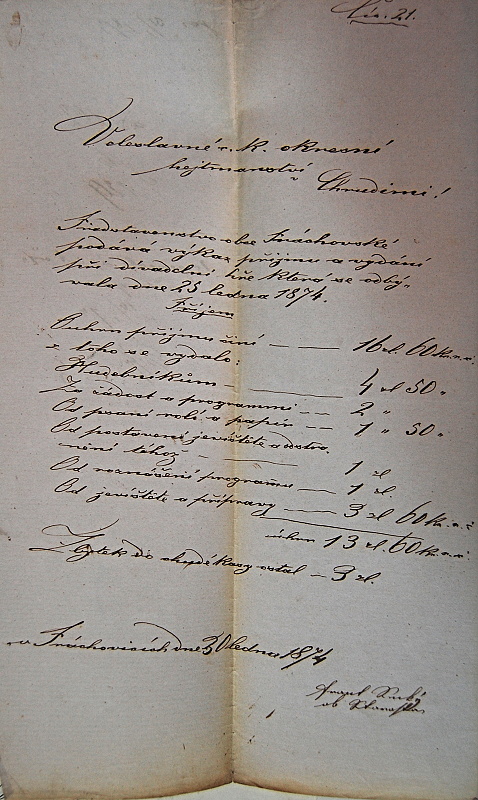 Čís. 21.
Veleslavné c. k. okresní
hejtmanství
v Chrudimi!
Představenstvo obce Práchovské
podává výkaz příjmu a vydání
při divadelní hře která se odbý-
vala dne 25 ledna 1874.
Příjem
Ouhrn příjmu činí — — 16 zl. 60 kr. r. č.
z toho se vydalo:
Hudebníkům — 4 zl 50 "
Za žádost a programmy — — 2 "
Od psaní rolí a papír — — 1 " 50 "
Od postavení jeviště a odstra-
nění téhož — 1 zl
Od roznášení programu — 1 zl.
Od jeviště a přípravy — 3 zl 60 kr. r. č.
úhrn 13 zl. 60 kr. r. č.
Zbytek do chudé kasy ostal — 3 zl.
v Práchovicích dne 30 ledna 1874
ob starosta